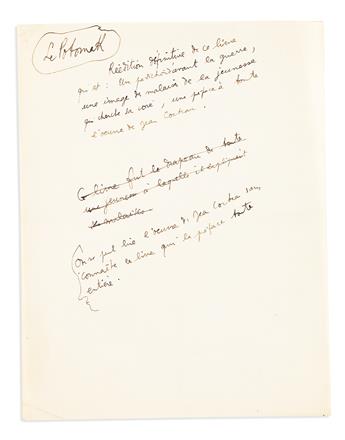 Le Potomak
Réédition définitive de ce livre
qui est : Un prochain avant la guerre,
une image du malaise de la jeunesse
qui cherche sa voie, une préface à toute
l'œuvre de Jean Cocteau.
Ce livre fut le drapeau de toute
une jeunesse à laquelle il expliquait
ses malaises
On ne peut lire l'œuvre de Jean Cocteau sans
connaître ce livre qui la préface toute
entière.